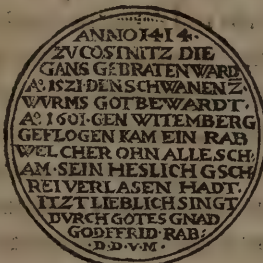 ANNO 1414.
ZV COSTNITZ DIE
GANS GEBRATEN WARD
Aº. 1521. DEN SCHWANEN Z.
WVRMS GOT BEWARDT.
Aº 1601. GEN WITEMBERG
GEFLOGEN KAM EIN RAB
WELCHER OHN ALLE SCH:
AM. SEIN HESLICH GSCH
REI VERLASEN HADT.
ITZT LIEBLICH SINGT
DVRCH GOTES GNAD
GODFFRID. RAB:
D. D. V. M.